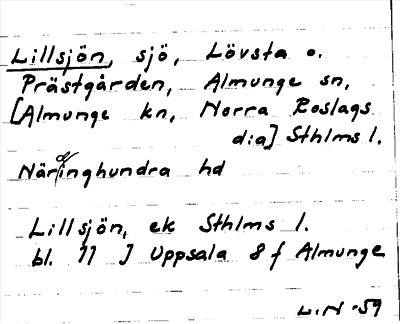 Lillsjön, sjö, Lövsta o.
Prästgården, Almunge sn,
[Almunge kn, Norra Roslags
dia] Sthlms l.
Närdinghundra hd
Lillsjön, ek Sthlms l.
bl. 77 J Uppsala 8 f Almunge
L.N -59